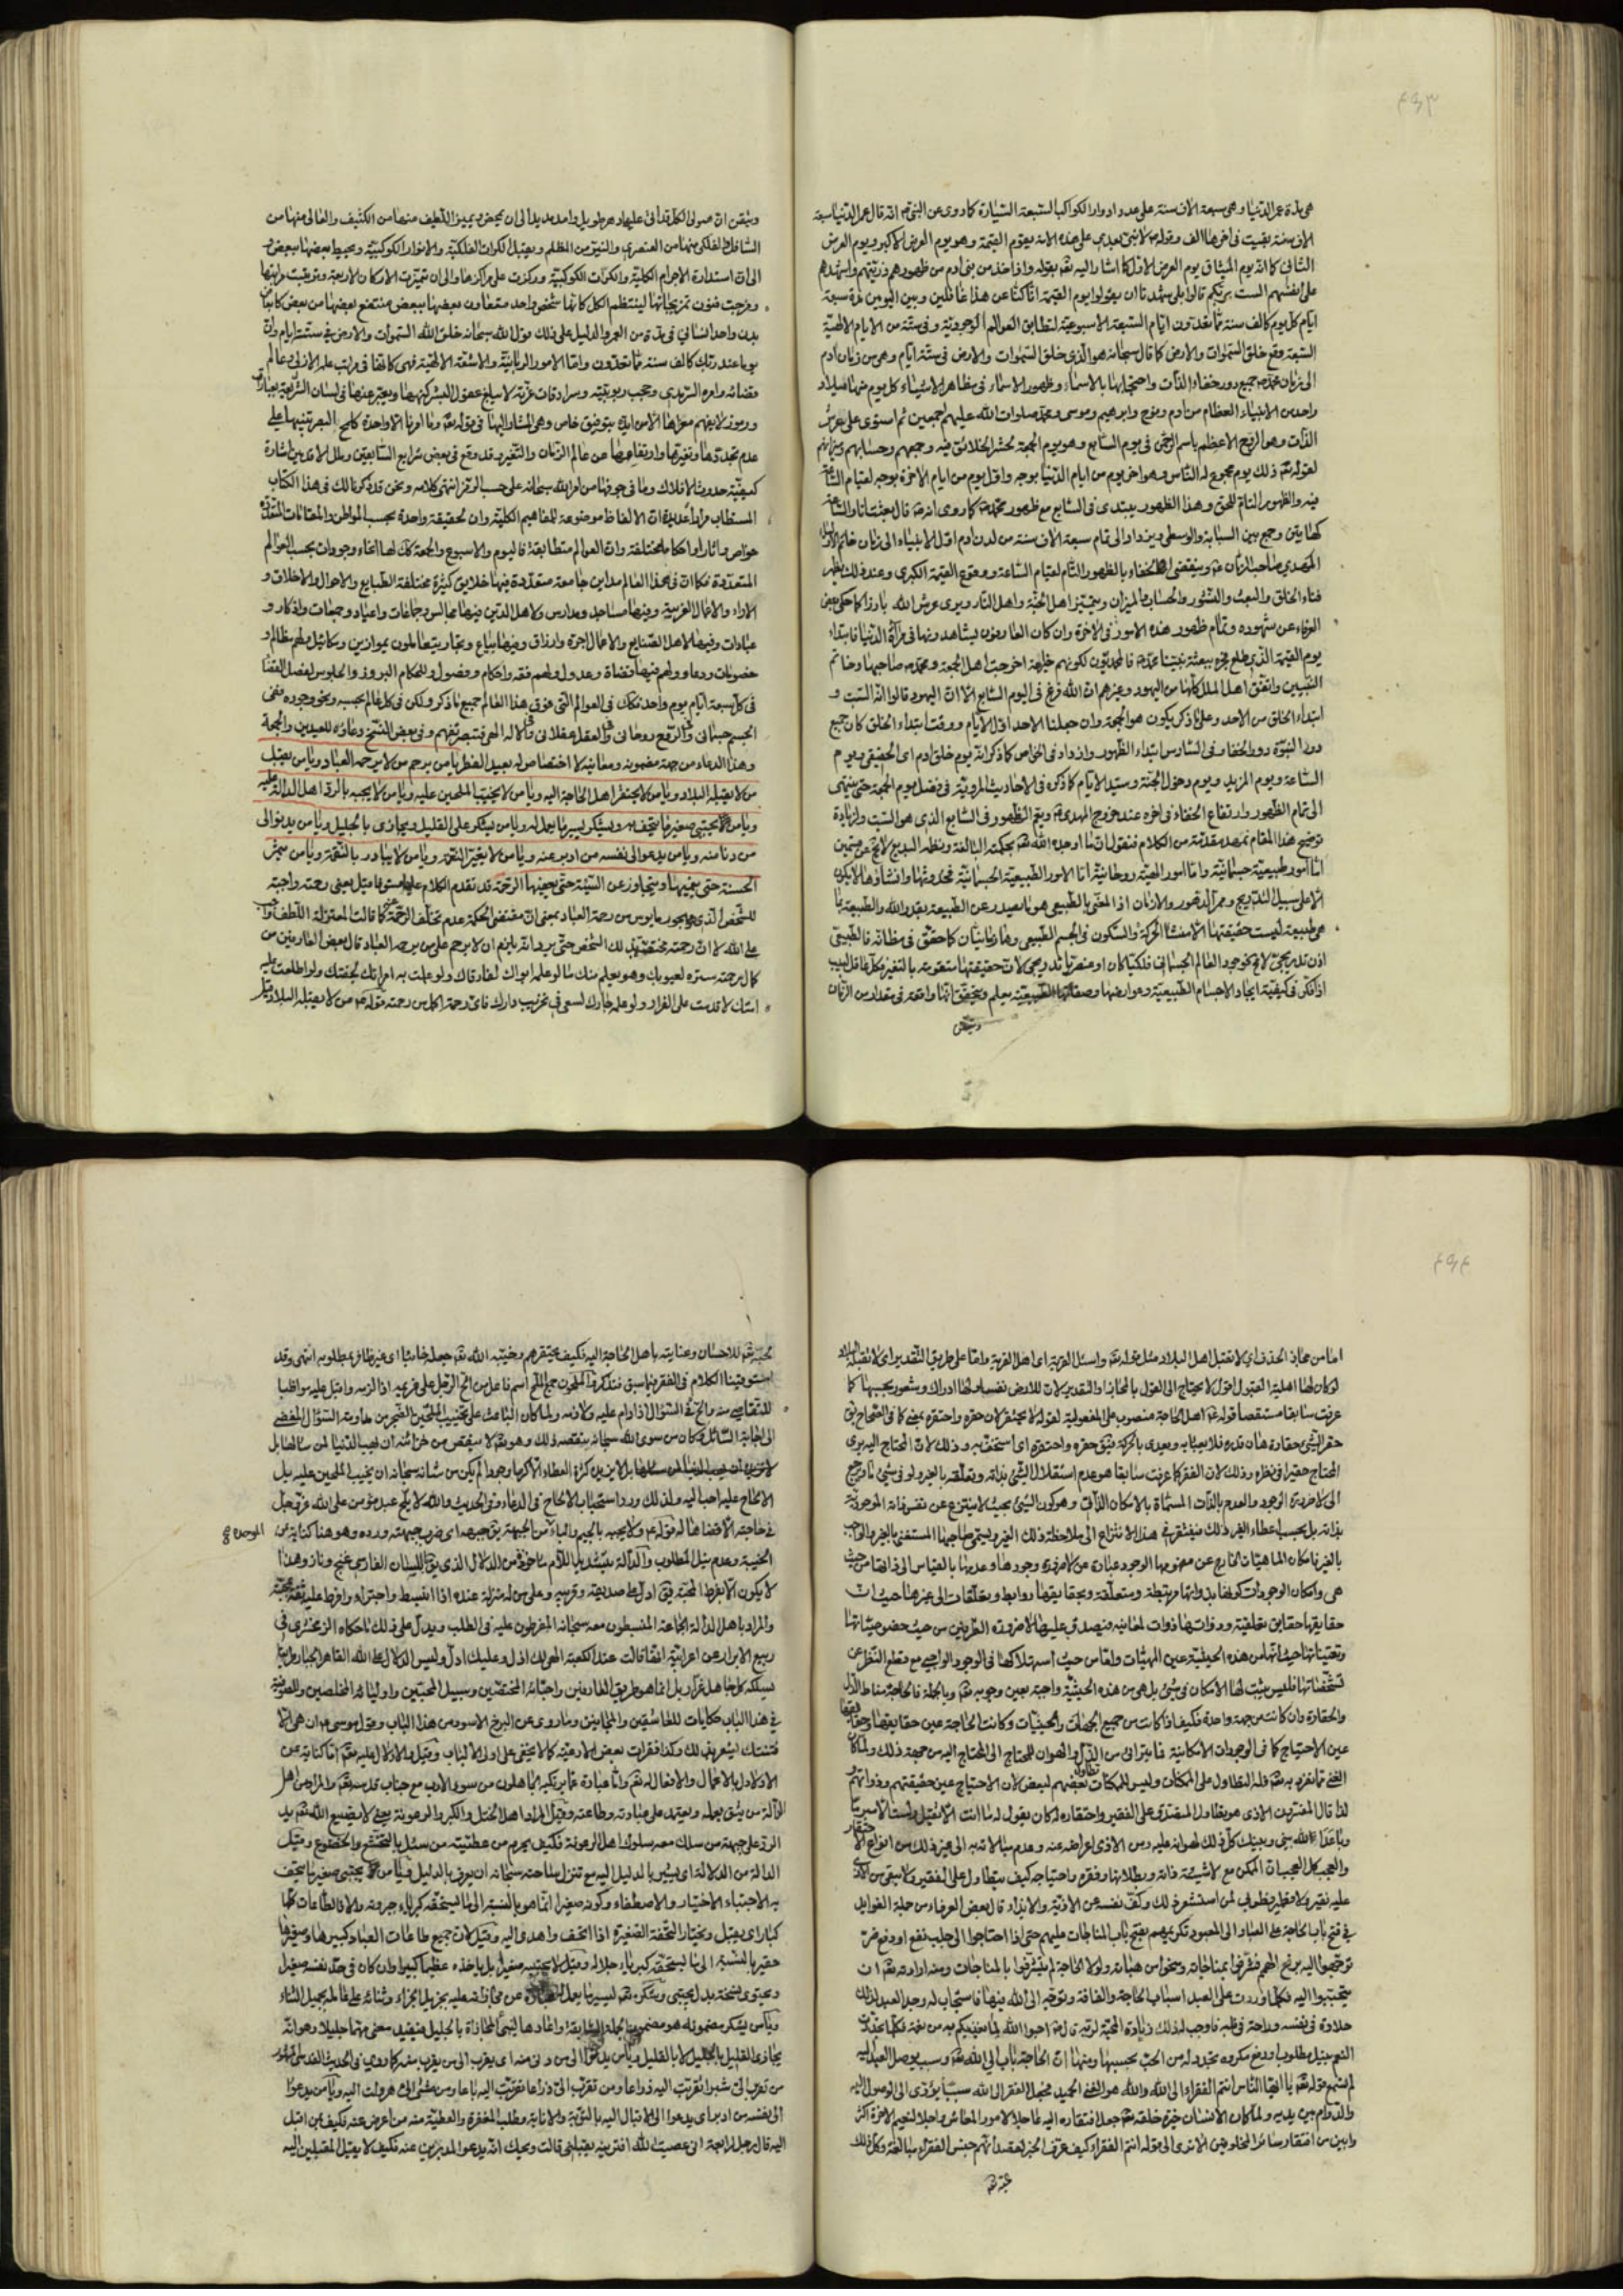 ٤٥٣
هى مدة عمر الدنيا وهى سبعة الاف سنة على عدد ادوار الكواكب السبعة السيارة كما روى عن النبى ص انه قال عمر الدنيا سبعة
الاف سنة بعثت فى اخرها الف وقوله ص لا نبى بعدى على هذه الامة يقوم القيمة وهو يوم العرض الاكبر ويوم العرض
الثانى كما انه يوم الميثاق يوم العرض الاول كما اشار اليه تعالى بقوله واذ اخذ من بنى ادم من ظهورهم ذريتهم واشهدهم
على انفسهم الست بربكم قالوا بلى شهدنا ان يقولوا يوم القيمة انا كنا عن هذا غافلين وبين اليومين سبعة
ايام كل يوم كالف سنة مما تعدون ايام السبعة الاسبوعية لتطابق العوالم الوجودية وفى ستة من الايام الالهية
السبعة وقع خلق السموات والارض كما قال سبحانه هو الذى خلق السموات والارض فى ستة ايام وهى من زمان ادم
الى زمان محمد ص جميع دور خفاء الذات واحتجابها بالاسماء وظهور الاسماء فى مظاهر الاشياء كل يوم منها ميلاد
واحد من الانبياء العظام من ادم ونوح وابرهيم وموسى ومحمد صلوات الله عليهم اجمعين ثم استوى على عرش
الذات وهو الرفيع الاعظم باسم الرحمن فى يوم السابع وهو يوم الجمعة لحشر الخلائق فيه وجمعهم وحسابهم وميزانهم
لقوله تعالى ذلك يوم مجموع له الناس وهو اخر يوم من ايام الدنيا بوجه واول يوم من ايام الاخرة بوجه لقيام الساعة
فيه والظهور التام للحق وهذا الظهور يبتدى فى السابع مع ظهور محمد ص كما روى انه ص قال بعثت انا والساعة
كهاتين وجمع بين السبابة والوسطى ويزداد الى تمام سبعة الاف سنة من لدن ادم اول الانبياء الى زمان خاتم الاولياء
المهدى صاحب الزمان ع وينقضى الخفاء بالظهور التام لقيام الساعة ووقوع القيمة الكبرى وعند ذلك يظهر
فناء الخلق والبعث والنشور والحساب والميزان ويتميز اهل الجنة واهل النار ويرى عرش الله بارزا كما حكى بعض
العرفاء عن شهوده وتمام ظهور هذه الامور فى الاخرة وان كان العارفون يشاهدونها فى مرآة الدنيا فابتداء
يوم القيمة الذى طلع فجره ببعثة نبينا محمد ص فالمحمديون لكونهم خير امة اخرجت اهل الجمعة ومحمد ص صاحبها وخاتم
النبيين واتفق اهل الملل كلها من اليهود وغيرهم ان الله فرغ فى اليوم السابع الا ان اليهود قالوا انه السبت و
ابتداء الخلق من الاحد وعلى ما ذكر يكون هو الجمعة وان جعلنا الاحد اول الايام ووقت ابتداء الخلق كان جميع
دور النبوة دور الخفاء وفى السادس ابتداء الظهور وازداد فى الخاص كما ذكر انه يوم خلق ادم اى الحقيقى ويوم
الساعة ويوم المزيد ويوم دخول الجنة وسيد الايام كما ذكره فى الاحاديث المروية فى فضل يوم الجمعة حتى ينتهى
الى تمام الظهور وارتفاع الخفاء فى اخره عند خروج المهدى ع ويتم الظهور فى السابع الذى هو السبت ولزيادة
توضيح هذا المقام نمهد مقدمة من الكلام فنقول ان ما اوجده الله تعالى بحكمته البالغة ونظمه البديع لا يخ عن قسمين
اما امور طبيعية جسمانية واما امور الهية روحانية اما الامور الطبيعية الجسمانية فحدوثها وانشاؤها لا يكون
الا على سبيل التدريج وممر الدهور والازمان اذ المعنى بالطبيعى هو ما يصدر عن الطبيعة بقدر الله والطبيعة بما
هى طبيعة ليست حقيقتها الا منشا الحركة والسكون فى الجسم الطبيعى وهما زمانيان كما حقق فى مظانه فالطبيعى
اذن تدريجى لا مح فوجود العالم الجسمانى فلكيا كان او عنصريا تدريجى لان حقيقتها متقومة بالتغير فكل عاقل لبيب
اذا فكر فى كيفية ايجاد الاجسام الطبيعية وعوارضها وصفاتها الطبيعية يعلم ويتحقق انها واقعة فى مقدار من الزمان
ويتيقن
ويتيقن ان هيولى الكل قد اتى عليها دهر طويل وامد مديد الى ان تمحض وتميز اللطيف منها من الكثيف والعالى منها من
السافل والفلكى منها من العنصرى والنير من المظلم ويقبل الكرات الفلكية والانوار الكوكبية ويحيط بعضها ببعض و
الى ان استدارة الاجرام الكلية والكرات الكوكبية وركزت على مراكزها والى ان تميزت الاركان الاربعة وترتبت مراتبها
ومزجت فنون تمزيجاتها لينتظم الكل كانها شخص واحد متعاون بعضها ببعض منتفع بعضها من بعض كاعضاء
بدن واحد انسانى فى مدة من العمر والدليل على ذلك قول الله سبحانه خلق الله السموات والارض فى ستة ايام وان
يوما عند ربك كالف سنة مما تعدون واما الامور الربانية والاشعة الالهية فهى كانها فى مراتب علم الازلى وعالم
قضائه وامره السرمدى وحجب ربوبيته وسرادقات عزته لا يبلغ عقول البشر كنهها ويعبر عنها فى لسان الشريعة بعبارات
ورموز لا يفهم مغزاها الا من ايد بتوفيق خاص وهى المشار اليها فى قوله تعالى وما امرنا الا واحدة كلمح البصر تنبيها على
عدم تجددها وتغيرها وارتفاعها عن عالم الزمان والتغير وقد وقع فى بعض شرايع السابقين وملل الاقدمين اشارة
كيفية حدوث الافلاك وما فى جوفها من امر الله سبحانه على حسب انتهى كلامه ونحن قد ذكرنا لك فى هذا الكتاب
المستطاب مرارا عديدة ان الالفاظ موضوعة للمفاهيم الكلية وان لحقيقة واحدة بحسب المواطن والمقامات المتعددة
خواص واثار واحكام مختلفة وان العوالم متطابقة فاليوم والاسبوع والجمعة كل لها انحاء وجودات بحسب العوالم
المتعددة فكما ان فى هذا العالم مداين جامعة متعددة فيها خلايق كثيرة مختلفة الطبايع والاحوال والاخلاق و
الاراء والاعمال الغريبة وفيها مساجد ومدارس ولاهل الدين فيها مجالس وجماعات واعياد وجمعات واذكار و
عبادات وفيها لاهل الصنايع والاعمال اجرة وارزاق وفيها بياع وتجار يتعاملون بموازين ومكائيل ولهم مظالم و
خصومات ودعاو ولهم فيها قضاة وعدول ولهم فقه واحكام وفصول وللحكام البروز والجلوس لفصل القضا
فى كل سبعة ايام يوم واحد فكان فى العوالم التى فوق هذا العالم جميع ما ذكر ولكن فى كل عالم بحسبه ونحو وجوده ففى
الجسم جسمانى وفى الروح روحانى وفى العقل عقلانى وفى الاله الهى فتبصر تفهم وفى بعض النسخ دعاؤه للعيدين والجمعة
وهذا الدعاء من جهة مضمونه ومعانيه لا اختصاص له بعيد الفطر يا من يرحم من لا يرحمه العباد ويا من يقبل
من لا يقبله البلاد ويا من لا يحتقر اهل الحاجة اليه ويا من لا يخيب الملحين عليه ويا من لا يجبه بالرد اهل الدالة عليه
ويا من يجتبى صغير ما يتحف به ويشكر يسير ما يعمل له ويا من يشكر على القليل ويجازى بالجليل ويا من يدنو الى
من دنا منه ويا من يدعو الى نفسه من ادبر عنه ويا من لا يغير النعمة ويا من لا يبادر بالنقمة ويا من يثمر
الحسنة حتى ينميها ويتجاوز عن السيئة حتى يعفيها الرحمة قد تقدم الكلام عليها مستوفى فما قيل يعنى رحمته واجبة
للشخص الذى هو مايوس من رحمة العباد بمعنى ان مقتضى الحكمة عدم تخلف الرحمة عنه كما قالت المعتزلة اللطف واجب
على الله لا ان رحمته مختصة بذلك الشخص حتى يرد انه يلزم ان لا يرحم على من يرحمه العباد قال بعض العارفين من
كمال رحمته ستره لعيوبك وهو يعلم منك ما لو علم ابواك لفارقاك ولو علمت به امراتك لجفتك ولو اطلعت عليه
امتك لاقدمت على الفرار ولو علم جارك لسعى فى تخريب دارك فاى رحمة اكمل من رحمته قوله ع من لا يقبله البلاد قيل
٤٥٤
اما من مجاز الحذف اى لا تقبل اهل البلاد مثل قوله تعالى واسئل القرية اى اهل القرية واما على طريق التقدير اى لا تقبله البلاد
لو كان لها اهلية القبول اقول لا يحتاج الى القول بالمجاز او التقدير لان للارض نفسا ولها ادراك وشعور بحسبها كما
عرفت سابقا مستقصا قوله ع اهل الحاجة منصوب على المفعولية لقوله لا يحتقر لان حقره واحتقره بمعنى كما فى الصحاح يق
حقر الشئ حقارة هان قدره فلا يعبأ به ويعدى بالحركة فيق حقره واحتقره اى استخف به وذلك لان المحتاج اليه يرى
المحتاج حقيرا فى نظره وذلك لان الفقر كما عرفت سابقا هو عدم استقلال الشئ بذاته وتعلقه بالغير ولو فى شئ ما ومرجع
الى لا ضرورة الوجود والعدم بالذات المسماة بالامكان الذاتى وهو كون الشئ بحيث لا ينتزع عن نفس ذاته الموجودية
بذاته بل بحسب اعطاء الغير ذلك فيفتقر فى هذا الانتزاع الى ملاحظة ذلك الغير ولينتهى حاجتها المستغنى بالغير والواجب
بالغير فامكان الماهيات الخارج عن مفهومها الوجود عبارة عن لا ضرورة وجودها وعدمها بالقياس الى ذاتها من حيث
هى وامكان الوجودات كونها بذواتها مرتبطة ومتعلقة وبحقايقها روابط وتعلقات الى غيرها حيث ان
حقايقها حقايق تعلقية وذواتها ذوات لمعانية فيصدق عليها لا ضرورة الطرفين من حيث
وتعيناتها حيث انها من هذه الحيثية عين المهيات ولها من حيث استهلاكها فى الوجود الواجبى مع قطع النظر عن
تشخصاتها فليس يثبت لها الامكان فى شئ بل هى من هذه الحيثية واجبة بعين وجوبه تعالى وبالجملة فالحاجة مناط الذل
والحقارة وان كانت من جهة واحدة فكيف اذا كانت من جميع الجهات والحيثيات وكانت الحاجة عين حقايقها
عين الاحتياج كما فى الوجودات الامكانية فما يترائى من الذل والهوان للمحتاج الى المحتاج اليه من جهة ذلك ولما كان
الغنى مما تفرد به تعالى فله التطاول على الممكنات وليس للممكنات تطاول بعضهم لبعض لان الاحتياج عين حقيقتهم وذواتهم
لذا قال المفسرين الاذى هو تطاول المتصدق على الفقير واحتقاره له كان يقول له ما انت الا ثقيل ولست الا مبرما
وباعد الله بينى وبينك كل ذلك لهوانه عليه ومن الاذى اعراضه عنه وعدم مبالاته به الى غير ذلك من انواع الاحتقار
والعجب كل العجب ان الممكن مع لاشيئية ذاته وبطلانها وفقره واحتياجه كيف يتطاول على الفقير ولا يبقى من
عليه نقير ولا قطمير فطوبى لمن استشعر ذلك وكف نفسه عن الاذية والايذاء قال بعض العرفاء من جملة الفوايد
فى فتح باب الحاجة على العباد الى المعبود تكريمهم بفتح باب المناجات عليهم حتى اذا احتاجوا الى جلب نفع او دفع ضر
توجهوا اليه برفع الهمم فشرفوا بمناجاته ومنحوا من هباته ولولا الحاجة لم يشرفوا بالمناجات ومنه ارادته تعالى ان
يتحببوا اليه فكلما وردت على العبد اسباب الحاجة والفاقة وتوجه الى الله فيها فاستجاب له وجد العبد لذلك
حلاوة فى نفسه وراحة فى قلبه فاوجب له ذلك زيادة المحبة لربه قال ص احبوا الله لما يغذيكم به من نعمه فكلما تجددت
النعم بنيل مطلوب او دفع مكروه تجدد له من الحب بحسبها ومنها ان الحاجة باب الى الله تعالى وسبب يوصل العبد اليه
لم تسمع قوله تعالى يا ايها الناس انتم الفقراء الى الله والله هو الغنى الحميد فجعل الفقر الى الله سببا يؤدى الى الوصول اليه
والدوام بين يديه ولما كان الانسان خيرة خلقه تعالى جعل افتقاره اليه عاجلا لامور المعاش واجلا لنعيم الاخرة اكثر
وابين من افتقار سائر المخلوقين الا ترى الى قوله انتم الفقراء كيف عرف الخبر لقصد انهم جنس الفقراء مبالغة وكل ذلك
محبته تعالى
محبته تعالى للاحسان وعنايته باهل الحاجة اليه فكيف يحتقرهم وخيبه الله تعالى جعله خائبا اى غير ظافر بمطلوبه انتهى وقد
استوفينا الكلام فى الفقر فيما سبق فتذكر والملحون جمع الملح اسم فاعل من الح الرجل على غريمه اذا لزمه واقبل عليه مواظبا
للتقاضى منه والح فى السؤال اذا دام عليه ولازمه ولما كان الباعث على تخييب الملحين الضجر من معاودة السؤال المفضى
الى اجابة السائل وكان من سوى الله سبحانه ينقصه ذلك وهو تعالى لا ينقص من خزائنه ان يهب الدنيا لمن سالها بل
لا يزيده كثرة العطاء الا كرما وجودا لم يكن من شانه سبحانه ان يخيب الملحين عليه بل
الالحاح عليه احب اليه ولذلك ورد استحباب الالحاح فى الدعاء وفى الحديث والله لا يلح عبد مؤمن على الله عز وجل
فى حاجته الا قضاها له قوله ع ولا يجبه بالجيم والباء من الجبهة يق جبهه اى ضرب جبهته ورده وهو هنا كناية عن
الخيبة وعدم نيل المطلوب والدالة بتشديد اللام ماخوذ من الدلال الذى يق بلسان الفارسى غنج وناز وهذا
لا يكون الا بفرط المحبة يق ادل على صديقه وقريبه وعلى من له منزلة عنده اذا انبسط واجترا وافرط عليه ثقة بمحبته
والمراد باهل الدالة الجماعة المنبسطون معه سبحانه المفرطون عليه فى الطلب ويدل على ذلك ما حكاه الزمخشرى فى
ربيع الابرار عن اعرابية انها قالت عند الكعبة الهى لك اذل وعليك ادل وليس الدلال على الله القاهر الجبار طريقا
يسلكه كل جاهل غرار بل انما هو طريق العارفين واحبائه المختصين وسبيل المحبين واوليائه المخلصين وللصوفية
فى هذا الباب حكايات للعاشقين والمجانين وما روى عن البرخ الاسود من هذا الباب وقول موسى ع ان هى الا
فتنتك يشعر بذلك وكذا فقرات بعض الادعية كما لا يخفى على اولى الالباب وقيل الادلال عليه تعالى اما كناية عن
الادلال بالاعمال والافعال له تعالى واما عبارة عما يرتكبه الجاهلون من سوء الادب مع جناب قدسه تعالى والمراد من اهل
الدالة من يثق بعمله ويعتمد على عبادته وطاعته وقيل المراد اهل التخيل والكبر والرعونة يعنى لا يضيع الله تعالى يد
الرد على جبهة من سلك معه سلوك اهل الرعونة فكيف يحرم من عطيته من سئل بالتخشع والخضوع وقيل
الدالة من الدلالة اى يشير بالدليل اليه مع تنزل ساحته سبحانه ان يعرف بالدليل قوله يا من يجتبى صغير ما يتحف
به الاجتباء الاختيار والاصطفاء وكونه صغيرا انما هو بالنسبة الى ما يستحقه كبرياء جبروته والا فالطاعات كلها
كبار اى يقبل ويختار التحفة الصغيرة اذا اتحف واهدى اليه وقيل لان جميع طاعات العباد كبيرها وصغيرها
حقير بالنسبة الى ما يستحقه كبرياء جلاله وقيل لا يجتبيه صغيرا بل ياخذه عظيما كبيرا وان كان فى حد نفسه صغيرا
ويحتوى نسخة بدل يجتبى وشكره تعالى ليسير ما يعمل له عبارة عن مجازاته عليه بجزيل الجزاء وثنائه على فاعله بجميل الثناء
ويا من يشكر مضمونه هو مضمون الجملة السابقة واعادها ليبنى المجازاة بالجليل فيفيد معنى مهما جليلا وهو انه
يجازى القليل بالجليل لا بالقليل ويا من يدنو الى من دنى منه اى يقرب الى من يقرب منه كما روى فى الحديث القدسى المشهور
من تقرب الى شبرا تقربت اليه ذراعا ومن تقرب الى ذراعا تقربت اليه باعا ومن مشى الى هرولت اليه ويا من يدعوا
الى نفسه من ادبر اى يدعوا الى الاقبال اليه بالتوبة والانابة ومطلب المغفرة والعطية منه من اعرض عنه فكيف بمن اقبل
اليه قال رجل لرابعة انى عصيت الله افترينه يقبلنى قالت ويحك انه يدعو المدبرين عنه فكيف لا يقبل المقبلين اليه